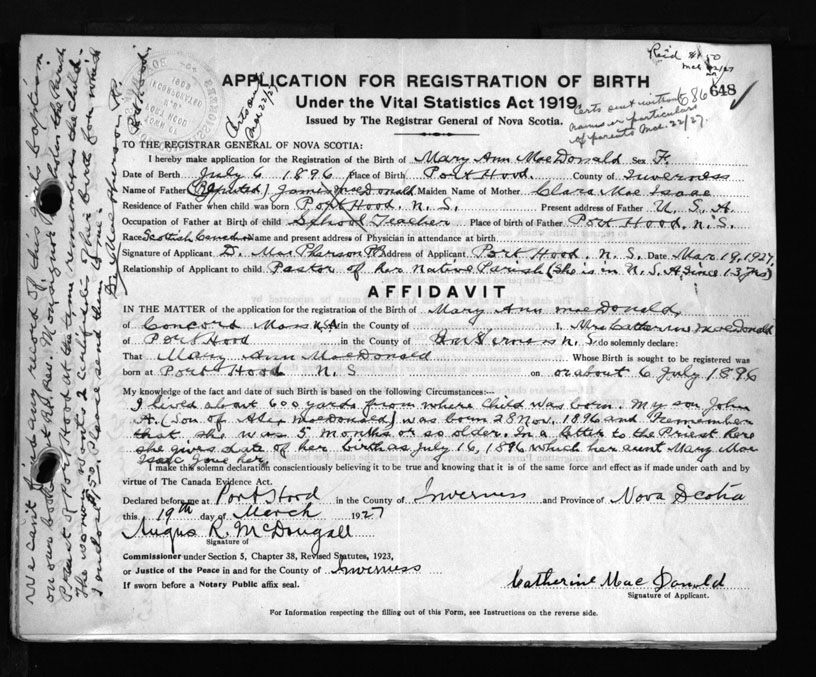 Rec'd $1.50
Mar 22/27
648
686
APPLICATION FOR REGISTRATION OF BIRTH
Under the Vital Statistics Act 1919
Issued by The Registrar General of Nova Scotia.
Certs out
Mar 22/27
Certs out without
names or particulars
of parents Mar. 22/27.
TO THE REGISTRAR GENERAL OF NOVA SCOTIA:
I hereby make application for the Registration of the Birth of Mary Ann MacDonald Sex F.
Date of Birth July 6 1896 Place of Birth Port Hood. County of Inverness
Name of Father (Reputed) James MacDonald Maiden Name of Mother Clara Mac Isaac
Residence of Father when child was born Port Hood. N. S. Present address of Father U. S. A.
Occupation of Father at Birth of child School Teacher Place of birth of Father Port Hood, N. S.
Race Scottish Canadian Name and present address of Physician in attendance at birth
Signature of Applicant D. MacPherson P.P. Address of Applicant Port Hood, N. S. Date Mar. 19, 1927.
Relationship of Applicant to child Pastor of her Native Parish (She is in U. S. A. since 13 yrs)
AFFIDAVIT
IN THE MATTER of the application for the registration of the Birth of Mary Ann MacDonald,
of Concord Mass USA in the County of I, Mrs Catherine MacDonald
of Port Hood in the County of Inverness N. S. do solemnly declare:
That Mary Ann MacDonald Whose Birth is sought to be registered was
born at Port Hood N. S on or about 6 July 1896
My knowledge of the fact and date of such Birth is based on the following Circumstances:—
I lived about 600 yards from where Child was born. My son John
A. (Son of Alex MacDonald) was born 28 Nov. 1896 and I remember
that she was 5 months or so older. In a letter to the Priest here
she gives date of her birth as July 16, 1896 which her aunt Mary Mac
Isaac gave her
I make this solemn declaration conscientiously believing it to be true and knowing that it is of the same force and effect as if made under oath and by
virtue of The Canada Evidence Act.
Declared before me at Port Hood in the County of Inverness and Province of Nova Scotia
this 19th day of March 1927
Angus R. McDougall
Signature of
Commissioner under Section 5, Chapter 38, Revised Statutes, 1923,
or Justice of the Peace in and for the County of Inverness
If sworn before a Notary Public affix seal.
Catherine Mac Donald
Signature of Applicant.
For Information respecting the filling out of this Form, see Instructions on the reverse side.
We can't find any record of this girl's baptism
on our books
Priest of Port Hood at the time
The woman wants 2 certificates of her birth for which
I enclose $1.50. Please send them to me.
D. MacPherson P.P.
Port Hood.